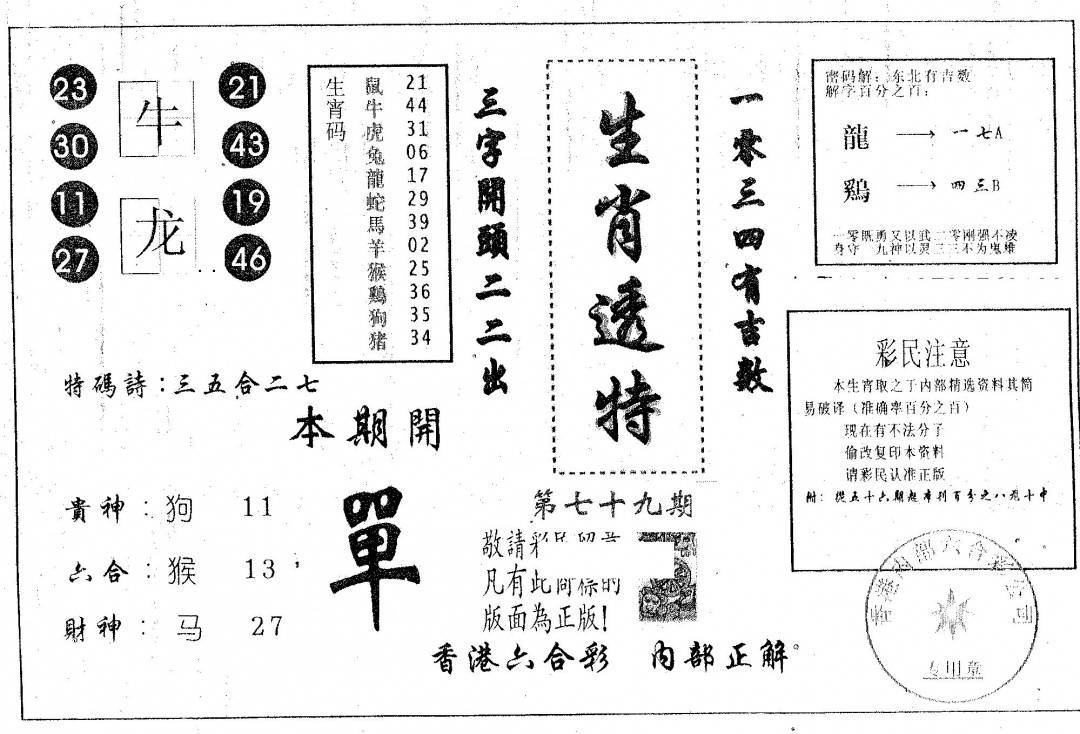 23 牛 21
30 43
11 龙 19
27 46
生宵码
鼠 21
牛 44
虎 31
兔 06
龍 17
蛇 29
馬 39
羊 02
猴 25
鷄 36
狗 35
猪 34
三字開頭二二出
生肖透特
一零三四有吉数
密码解：东北有吉数
解字百分之百：
龍 → 一七A
鷄 → 四三B
一零既勇又以武二零刚强不凌
身守 九神以灵三三不为鬼雄
特碼詩：三五合二七
本期開
單
貴神：狗 11
六合：猴 13
財神：马 27
第七十九期
敬請彩民留意
凡有此商标的
版面為正版!
香港六合彩 内部正解。
彩民注意
本生宵取之于内部精选资料其简
易破译（准确率百分之百）
现在有不法分子
偷改复印本资料
请彩民认准正版
附：從五十六期起本刊百分之八九十中
香港内部六合彩公司
专用章